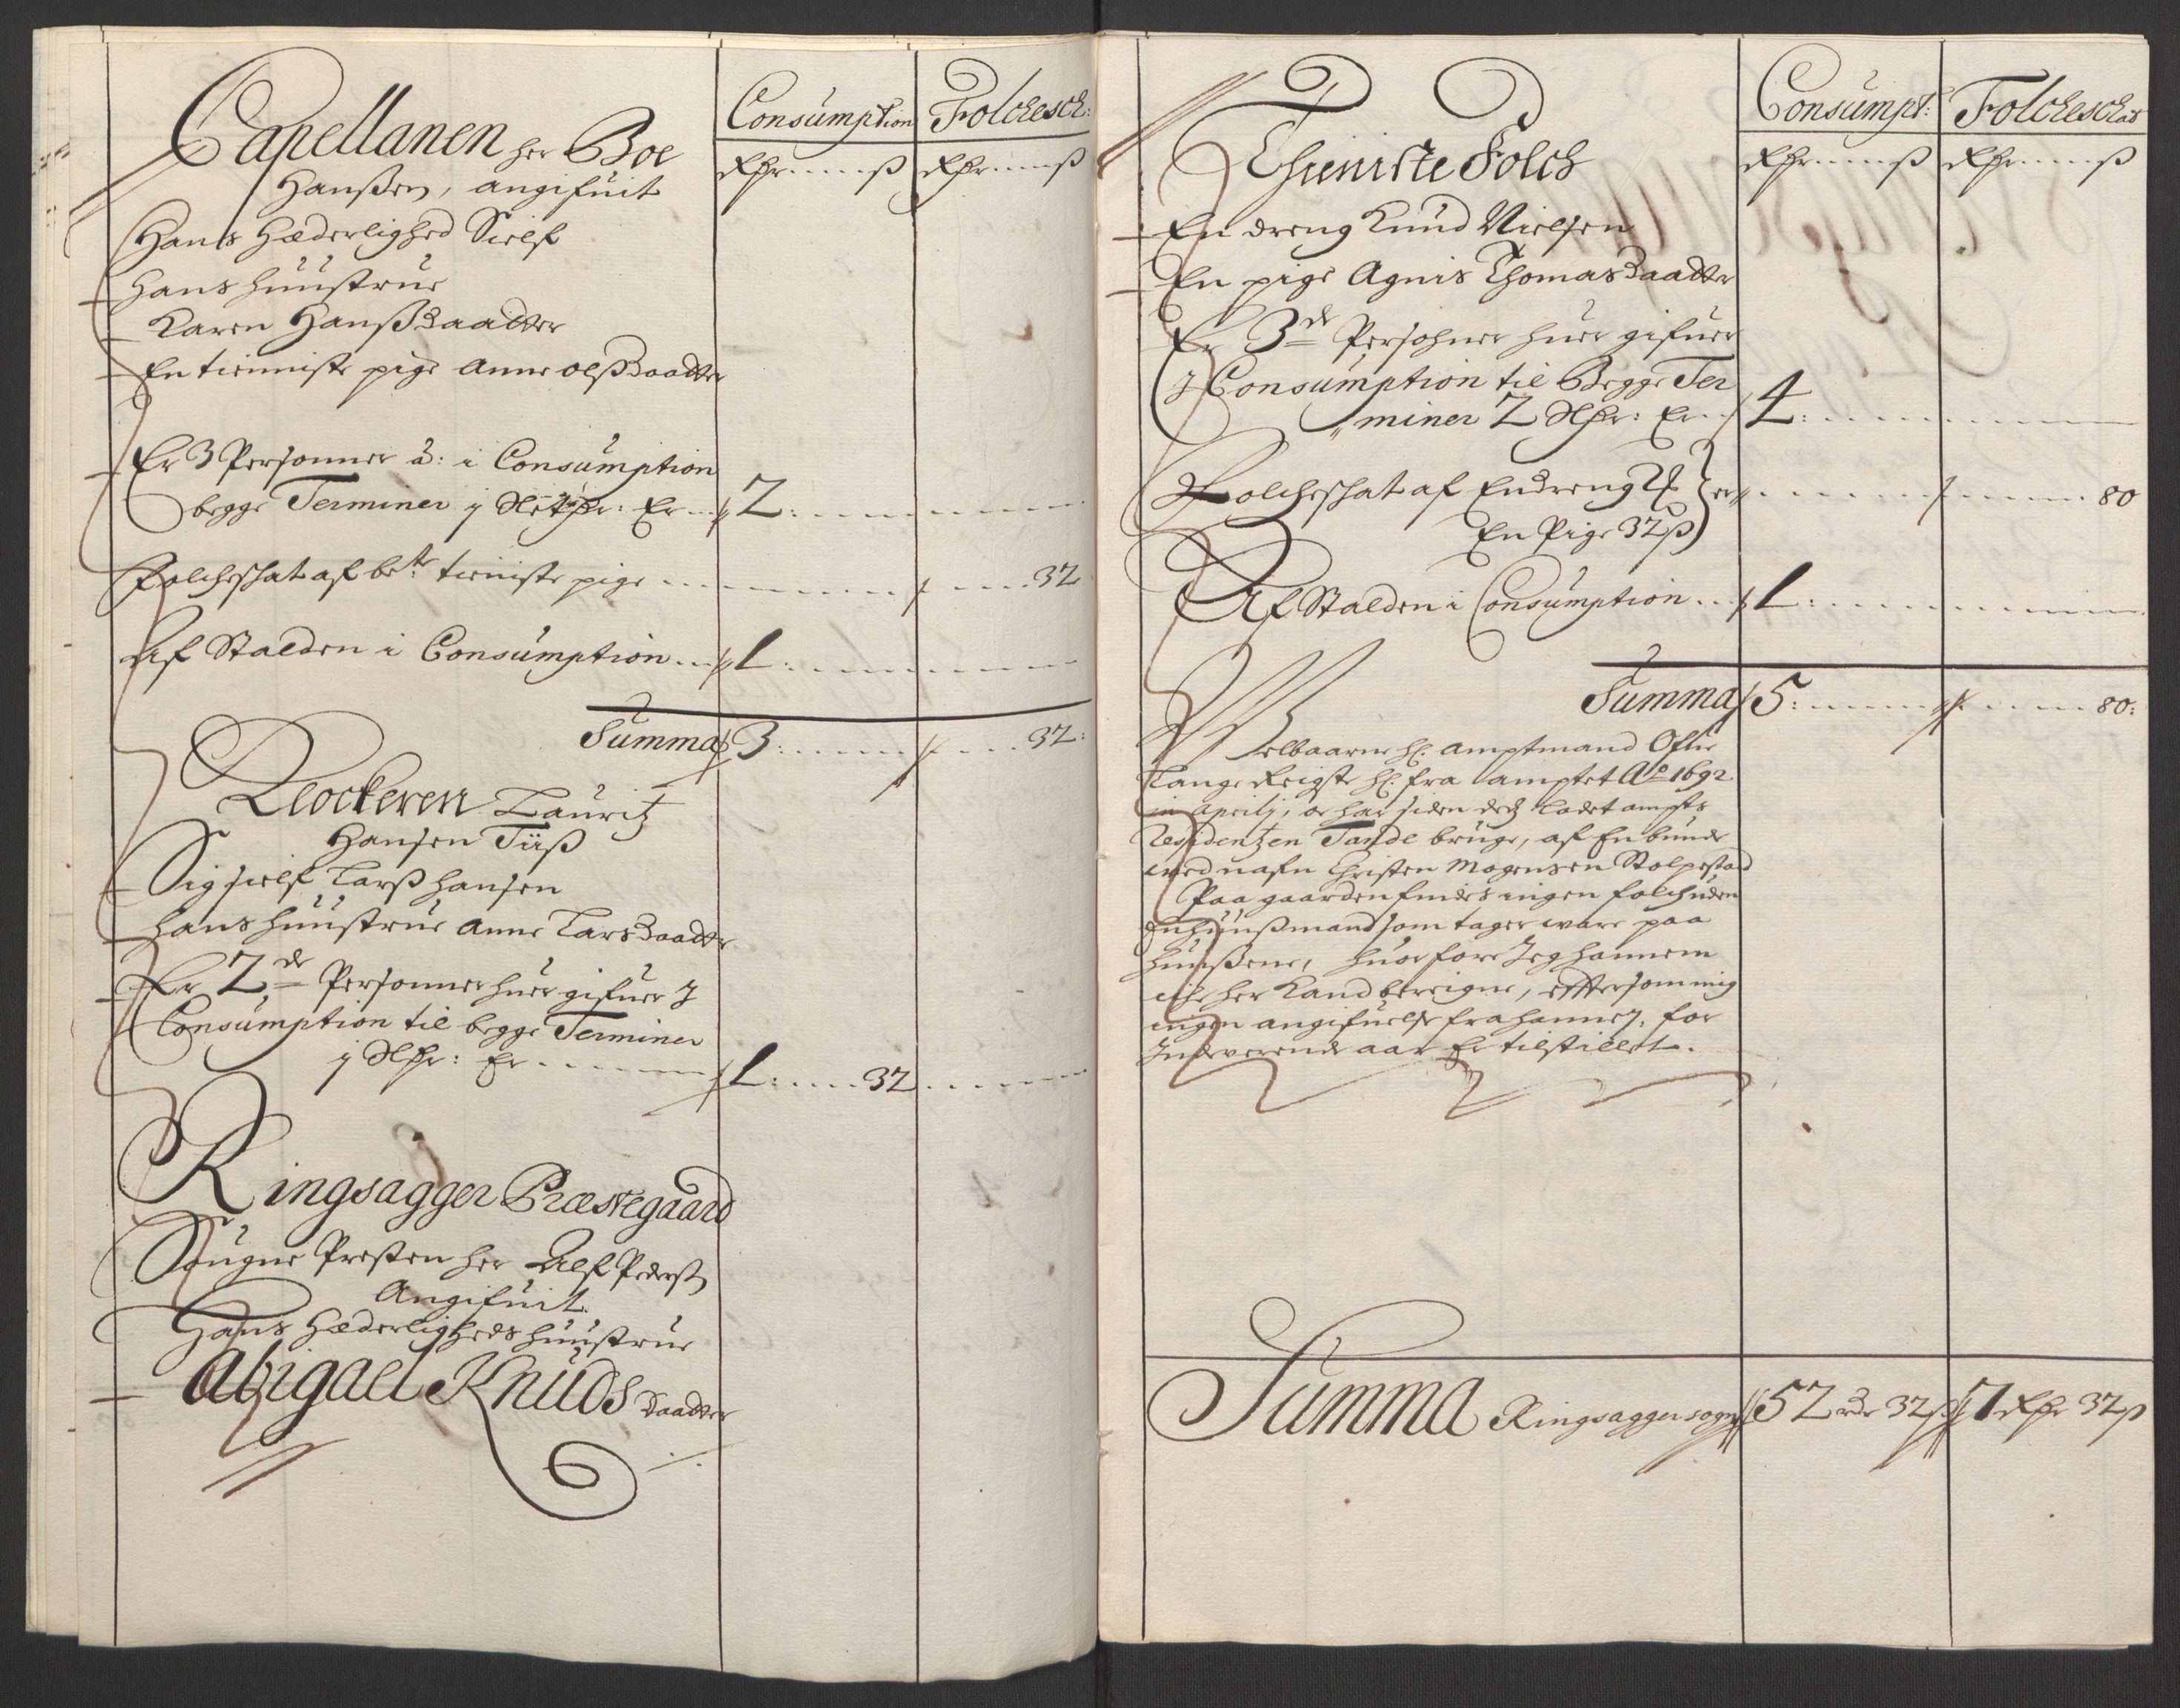 Consumption Folchesch:
Rdr ß Rdr ß
Capellanen her Boe
Hanßen, angifuit
Hans Hæderlighed Sielf
Hans huustrue
Karen Hanßdaatter
En tieniste pige Anne Olßdaatter
Er 3 Personner à: i Consumption
begge Terminer j Er 2:
Folcheschat af be.te tieniste pige 32
Af Stalden i Consumption 1:
Summa 3: 32:
Clockeren Lauritz
Hansen Tüß
Sig sielf Larß Hansen
Hans huustrue Anne Larsdaatter
Er 2de Personner huer gifuer J
Consumption til begge Terminer
j Er 1: 32
Ringsagger Præstegaard
Sougne Presten her Alf Pederß
Angifuit.
Hans Hæderligheds huustrue
Abigael Knuds daatter
Consumpt: Folcheschat
Rdr ß Rdr ß
Thieniste Folch
En dreng Knud Nielsen
En pige Agnis Thomasdaatter
Er 3de Persohner huer gifuer
J Consumption til Begge Ter
miner 2 Er 4:
Folcheschat af En dreng er 80
En Pige 32 ß
Af Stalden i Consumption 1:
Summa 5: 80:
Welbaarne H. amptmand Oftue
Lange Reigste H. fra amptet Ao 1692
in Aprilj, or har siden ladet ampts
Residentzen Tande bruge, af En bunde
ved nafn Christen Mogensen Stolpestad
Paa gaarden findes ingen folch uden
En huußmand som tager ware paa
huußene, huorfore Jeg hannem
iche her Kand bereigne, effersom mig
ingen angifuelse fra hannem, for
Indewerende aar Er tilstillet.
Summa Ringsagger sogn 52 rdr 32 ß 7 Rdr 32 ß